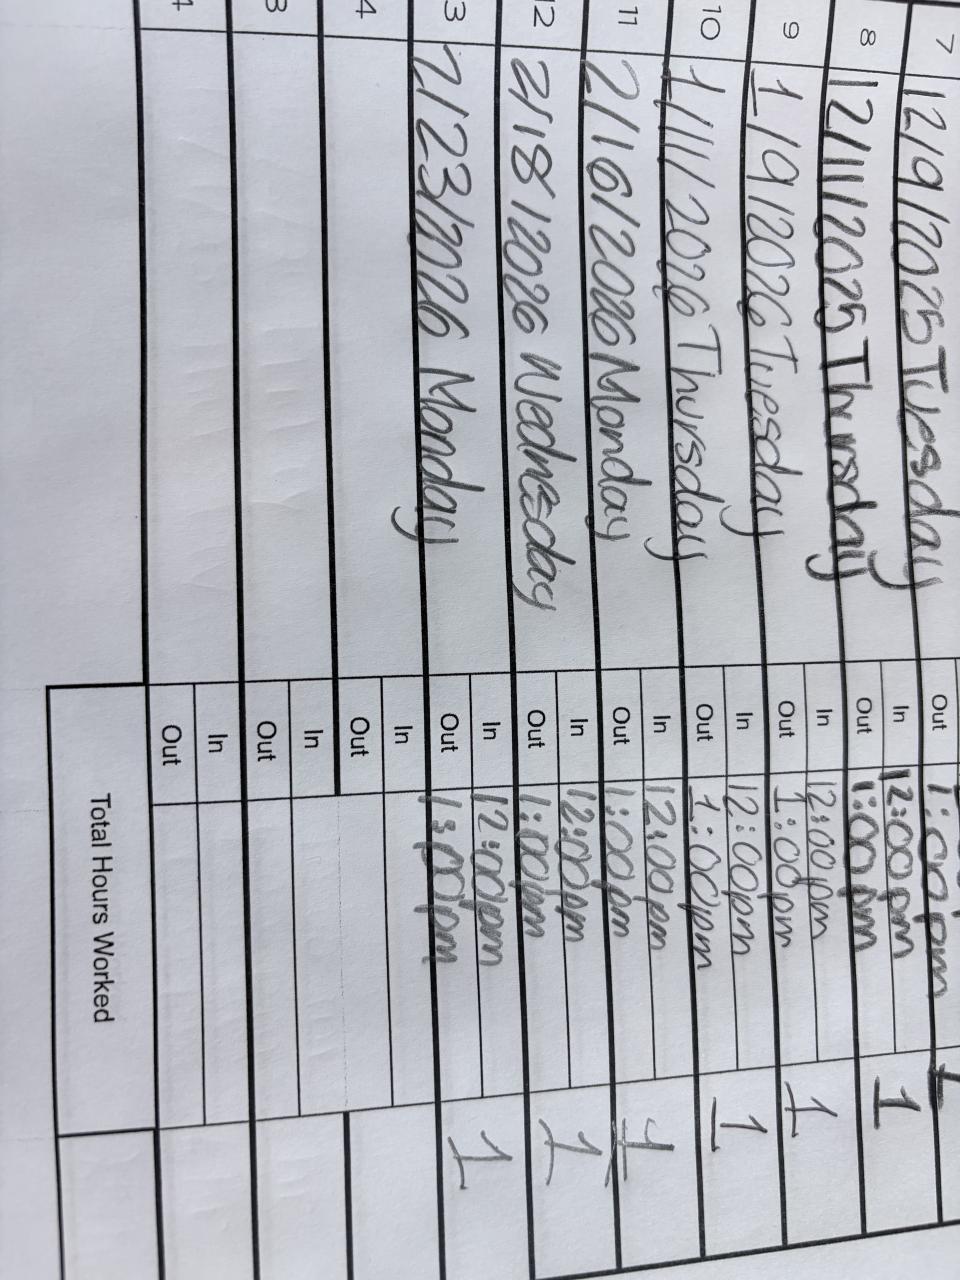 7 12/9/2025 Tuesday
Out 1:00pm
8 12/11/2025 Thursday
In 12:00pm 1
Out 1:00pm
9 1/9/2026 Tuesday
In 12:00pm 1
Out 1:00pm
10 1/11/2026 Thursday
In 12:00pm 1
Out 1:00pm
11 2/16/2026 Monday
In 12:00pm 1
Out 1:00pm
12 2/18/2026 Wednesday
In 12:00pm 1
Out 1:00pm
3 2/23/2026 Monday
In 12:00pm 1
Out 1:00pm
4
In
Out
3
In
Out
4
In
Out
Total Hours Worked